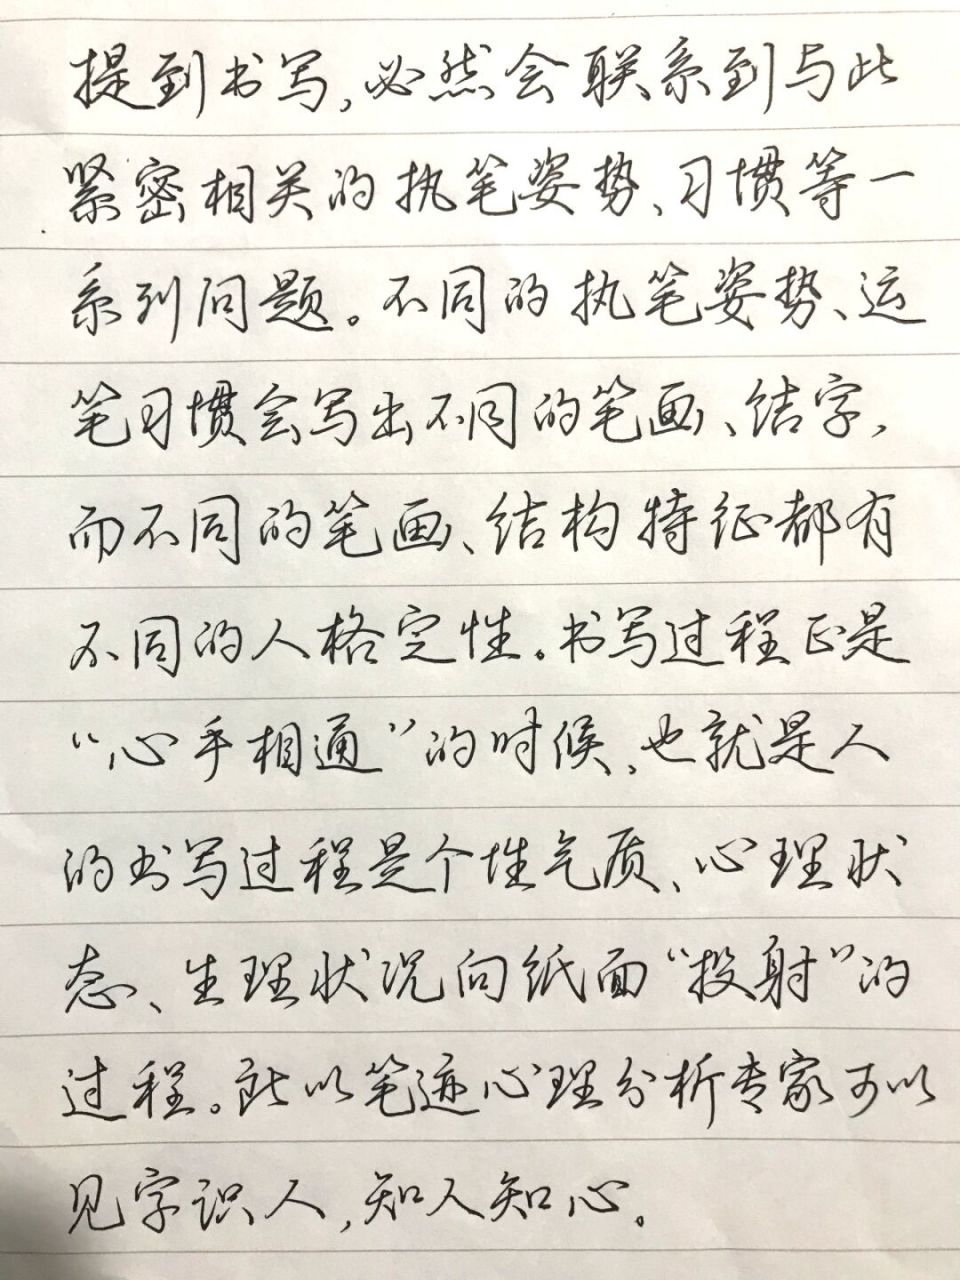 提到书写,必然会联系到与此
紧密相关的执笔姿势、习惯等一
系列问题。不同的执笔姿势、运
笔习惯会写出不同的笔画、结字,
而不同的笔画、结构特征都有
不同的人格定性。书写过程正是
“心手相通”的时候,也就是人
的书写过程是个性气质、心理状
态、生理状况向纸面“投射”的
过程。所以笔迹心理分析专家可以
见字识人,知人知心。